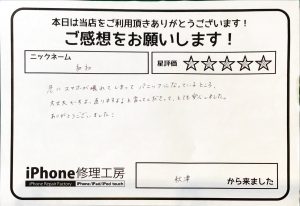 本日は当店をご利用頂きありがとうございます!
ご感想をお願いします!
ニックネーム
星評価 ☆☆☆☆☆
急にスマホが壊れてしまって パニックになっているところ、
大丈夫ですよ、直りますよと言ってくださって、とても安心しました。
ありがとうございました!
iPhone修理工房
iPhone Repair Factory iPhone/iPad/iPod touch
秋津 から来ました